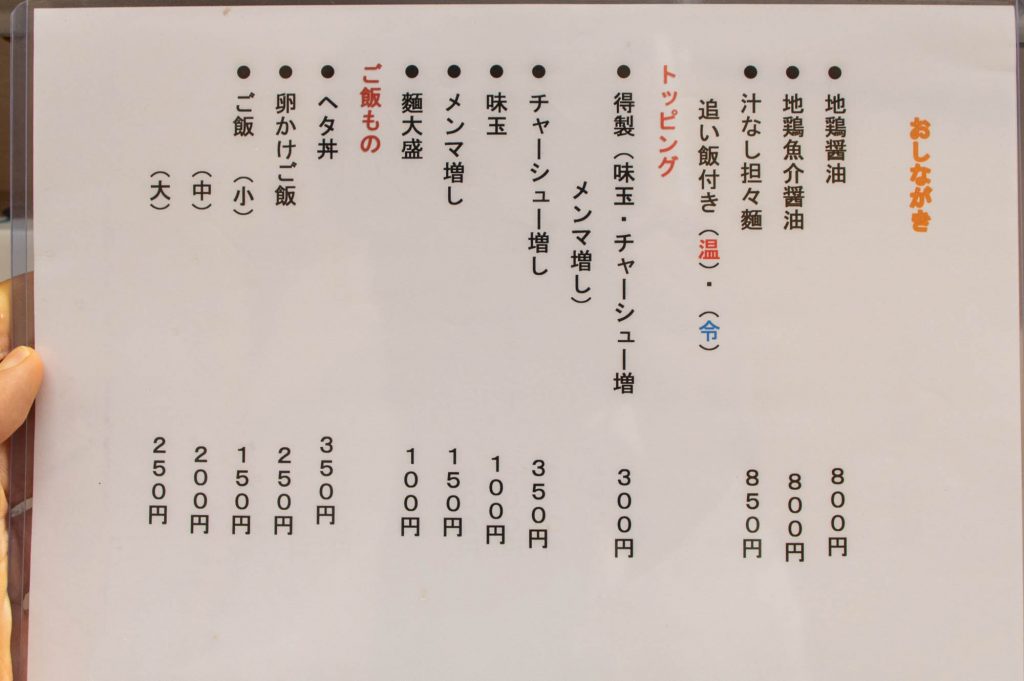 おしながき
●地鶏醤油 800円
●地鶏魚介醤油 800円
●汁なし担々麵 850円
追い飯付き(温)・(令)
トッピング
●得製(味玉・チャーシュー増
メンマ増し) 300円
●チャーシュー増し 350円
●味玉 100円
●メンマ増し 150円
●麵大盛 100円
ご飯もの
●ヘタ丼 350円
●卵かけご飯 250円
●ご飯 (小) 150円
(中) 200円
(大) 250円